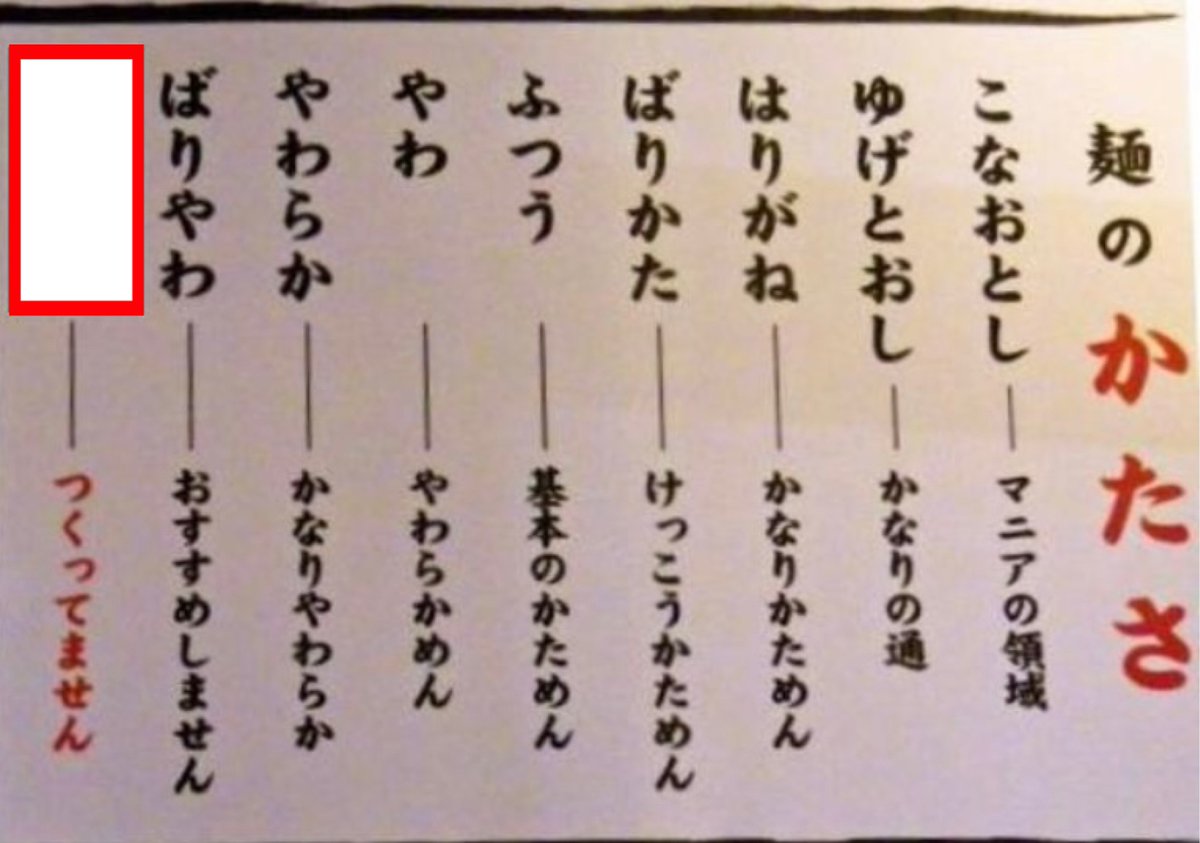 麺のかたさ
こなおとし――マニアの領域
ゆげとおし――かなりの通
はりがね――かなりかためん
ばりかた――けっこうかためん
ふつう――基本のかためん
やわ――やわらかめん
やわらか――かなりやわらか
ばりやわ――おすすめしません
――つくってません